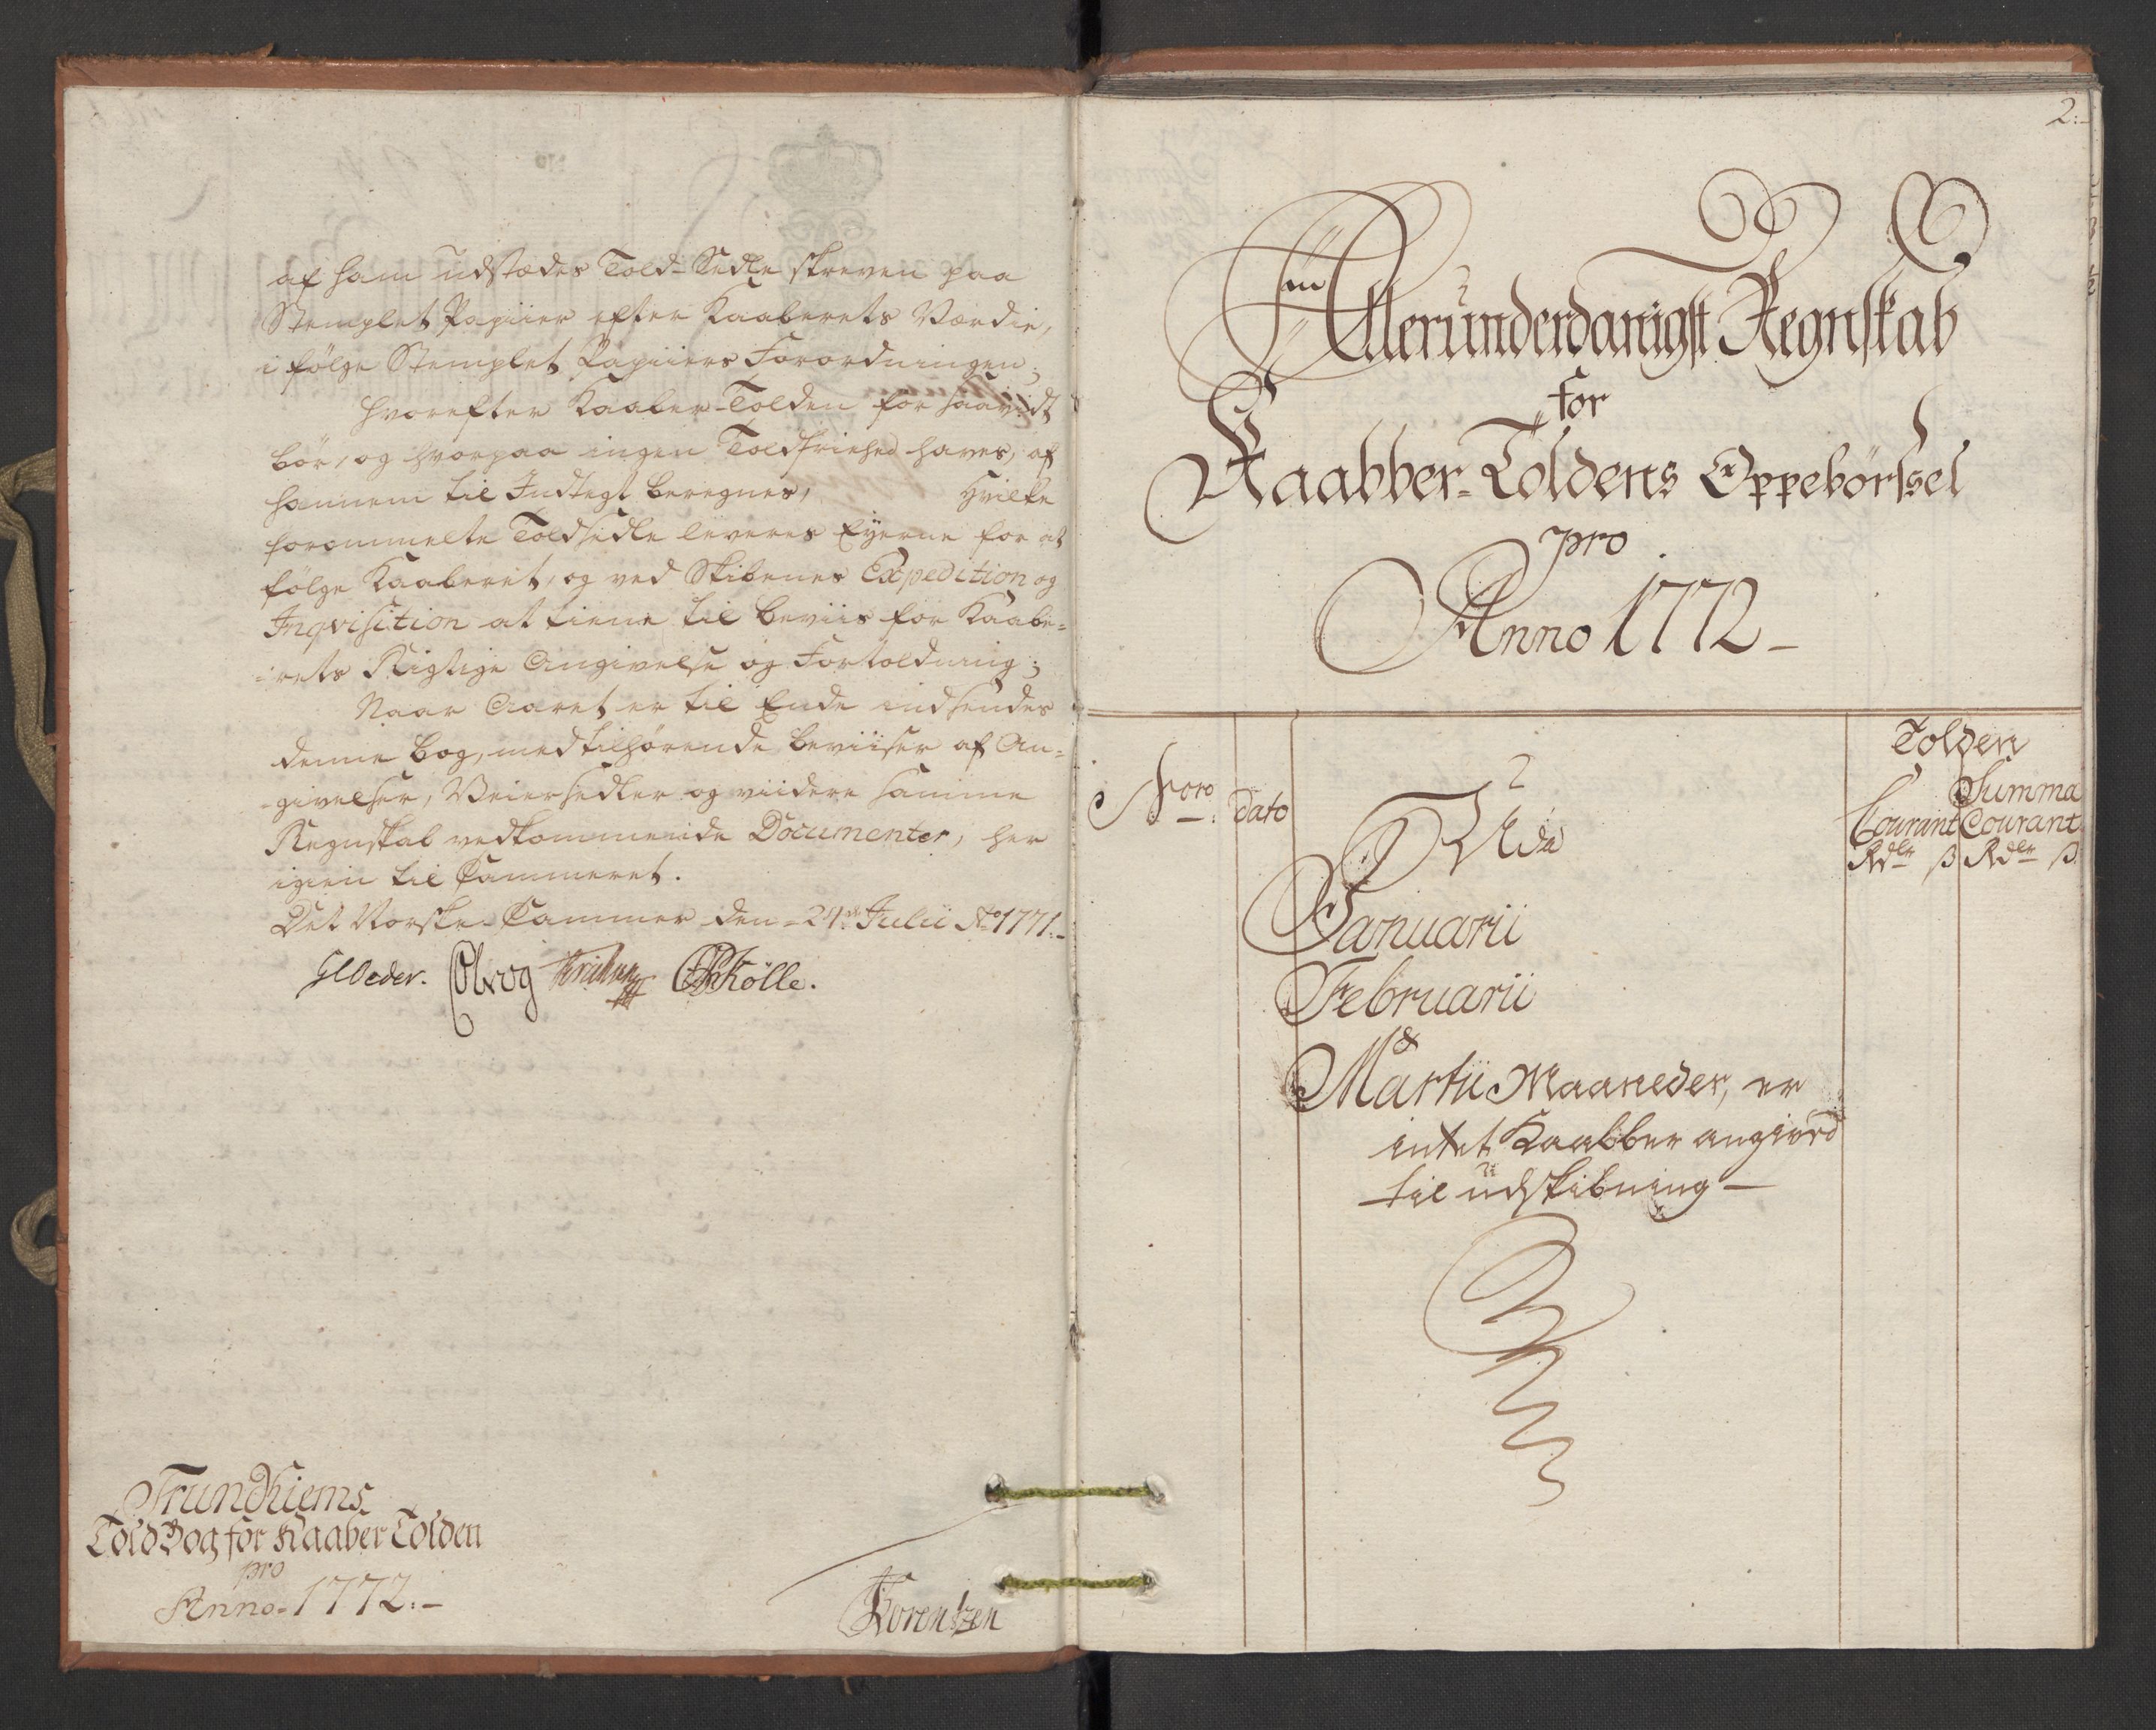 af ham udstædes Told-Sedle skreven paa
Stemplet Papiir efter Kaaberets Værdie,
i følge Stemplet Papiirs Forordningen;
Hvorefter Kaaber-Tolden for saavidt
bör, og hvorpaa ingen Toldfriehed haves, af
hannem til Indtegt beregnes, Hvilke
forommelte Toldsedle leveres Eyerne for at
følge Kaaberet, og ved Skibenes Expedition og
Inqvisition at tiene til beviis for Kaabe=
=rets Rigtige Angivelse og Fortoldning;
Naar Aaret er til Ende indsendes
denne Bog, med tilhørende beviiser af An=
=givelser, Veiersedler og viidere samme
Regnskab vedkommende Documenter, her
igien til Cammeret.
Det Norske Cammer den 24de Julii Ao 1771.
GCOeder. Kølle.
Trundhiems
Told Bog for Kaaber Tolden
pro
Anno 1772:-
Lorentzen
2:
Allerunderdanigst Regnskab
for
Kaabber-Toldens Oppebörssel
pro
Anno 1772-
Tolden
Dato
Summa
Courant Courant
Rdlr ß Rdlr ß
Januarii
Februarii
&
Martii Maaneder, er
intet Kaabber angived
til udskibning-